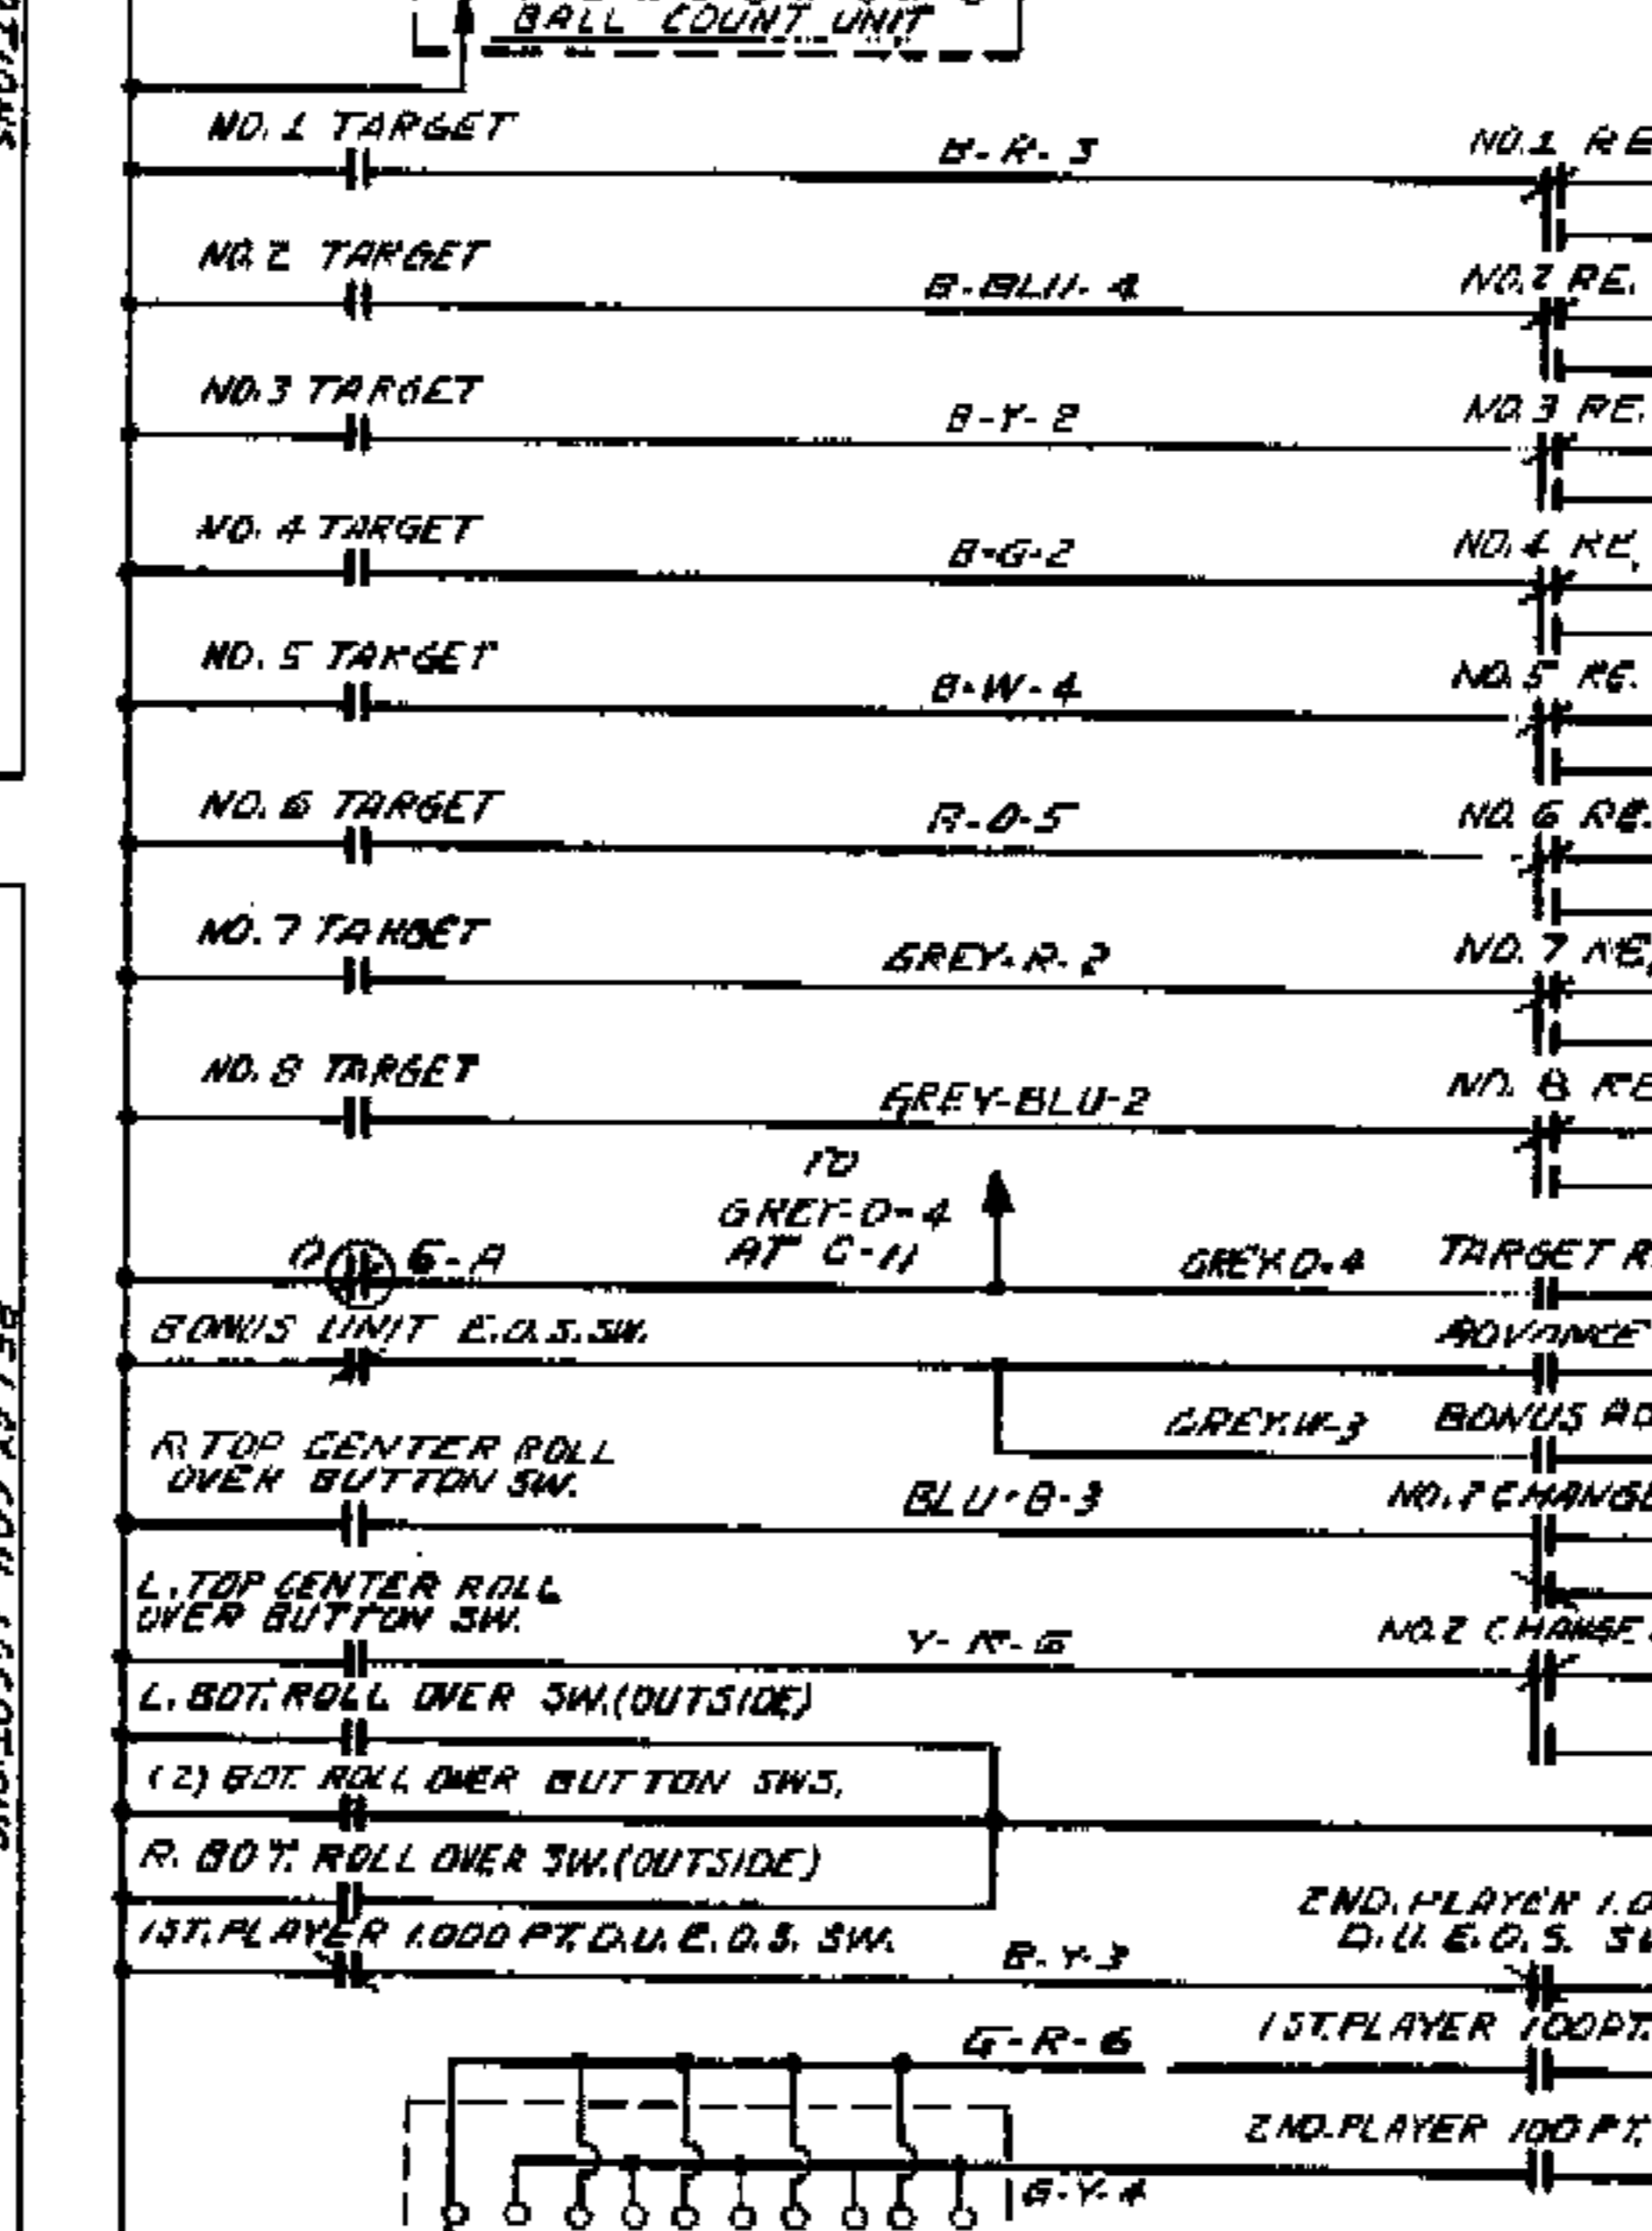 BALL COUNT UNIT
NO. 1 TARGET
B-R-3
NO.1 RE
NO. 2 TARGET
B-BLU-4
NO.2 RE.
NO.3 TARGET
B-Y-2
NO.3 RE.
NO. 4 TARGET
B-G-2
NO.4 RE.
NO. 5 TARGET
B-W-4
NO.5 RE.
NO. 6 TARGET
R-O-5
NO. 6 RE.
NO. 7 TARGET
GREY-R-2
NO. 7 RE.
NO. 8 TARGET
GREY-BLU-2
NO. 8 RE
TO
GREY-O-4
AT C-11
6-A
GREY-O-4
TARGET R
BONUS UNIT E.O.S. SW.
ADVANCE
GREY-W-3
BONUS AD
R. TOP CENTER ROLL
OVER BUTTON SW.
BLU-B-3
CHANGE
L. TOP CENTER ROLL
OVER BUTTON SW.
Y-R-6
NO.2 CHANGE
L. BOT. ROLL OVER SW. (OUTSIDE)
(2) BOT. ROLL OVER BUTTON SWS.
R. BOT. ROLL OVER SW. (OUTSIDE)
1ST. PLAYER 1.000 PT. D.U. E.O.S. SW.
B-Y-3
2ND. PLAYER 1.0
D.U. E.O.S. SW
G-R-6
1ST. PLAYER 100 PT.
2ND. PLAYER 100 PT.
G-Y-4